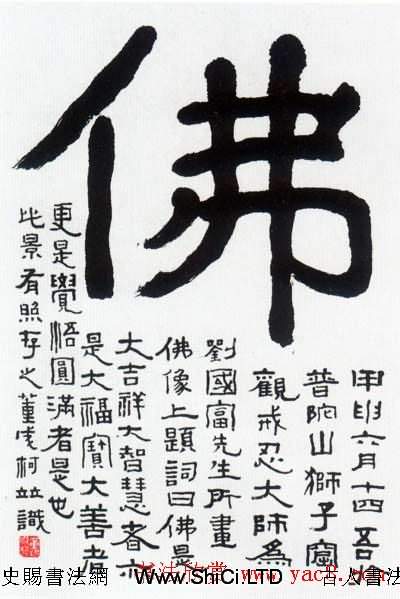 佛
甲申六月十四吾
普陀山獅子窟
觀戒忍大師為
劉國富先生所畫
佛像上題詞曰佛景
大吉祥大智慧者亦
是大福寶大善者
更是覺悟圓滿者是也
此景有照存之董凌柯並識
书法欣赏 www.yac8.com
史賜書法網 Www.ShiCi.LTD 古人書法